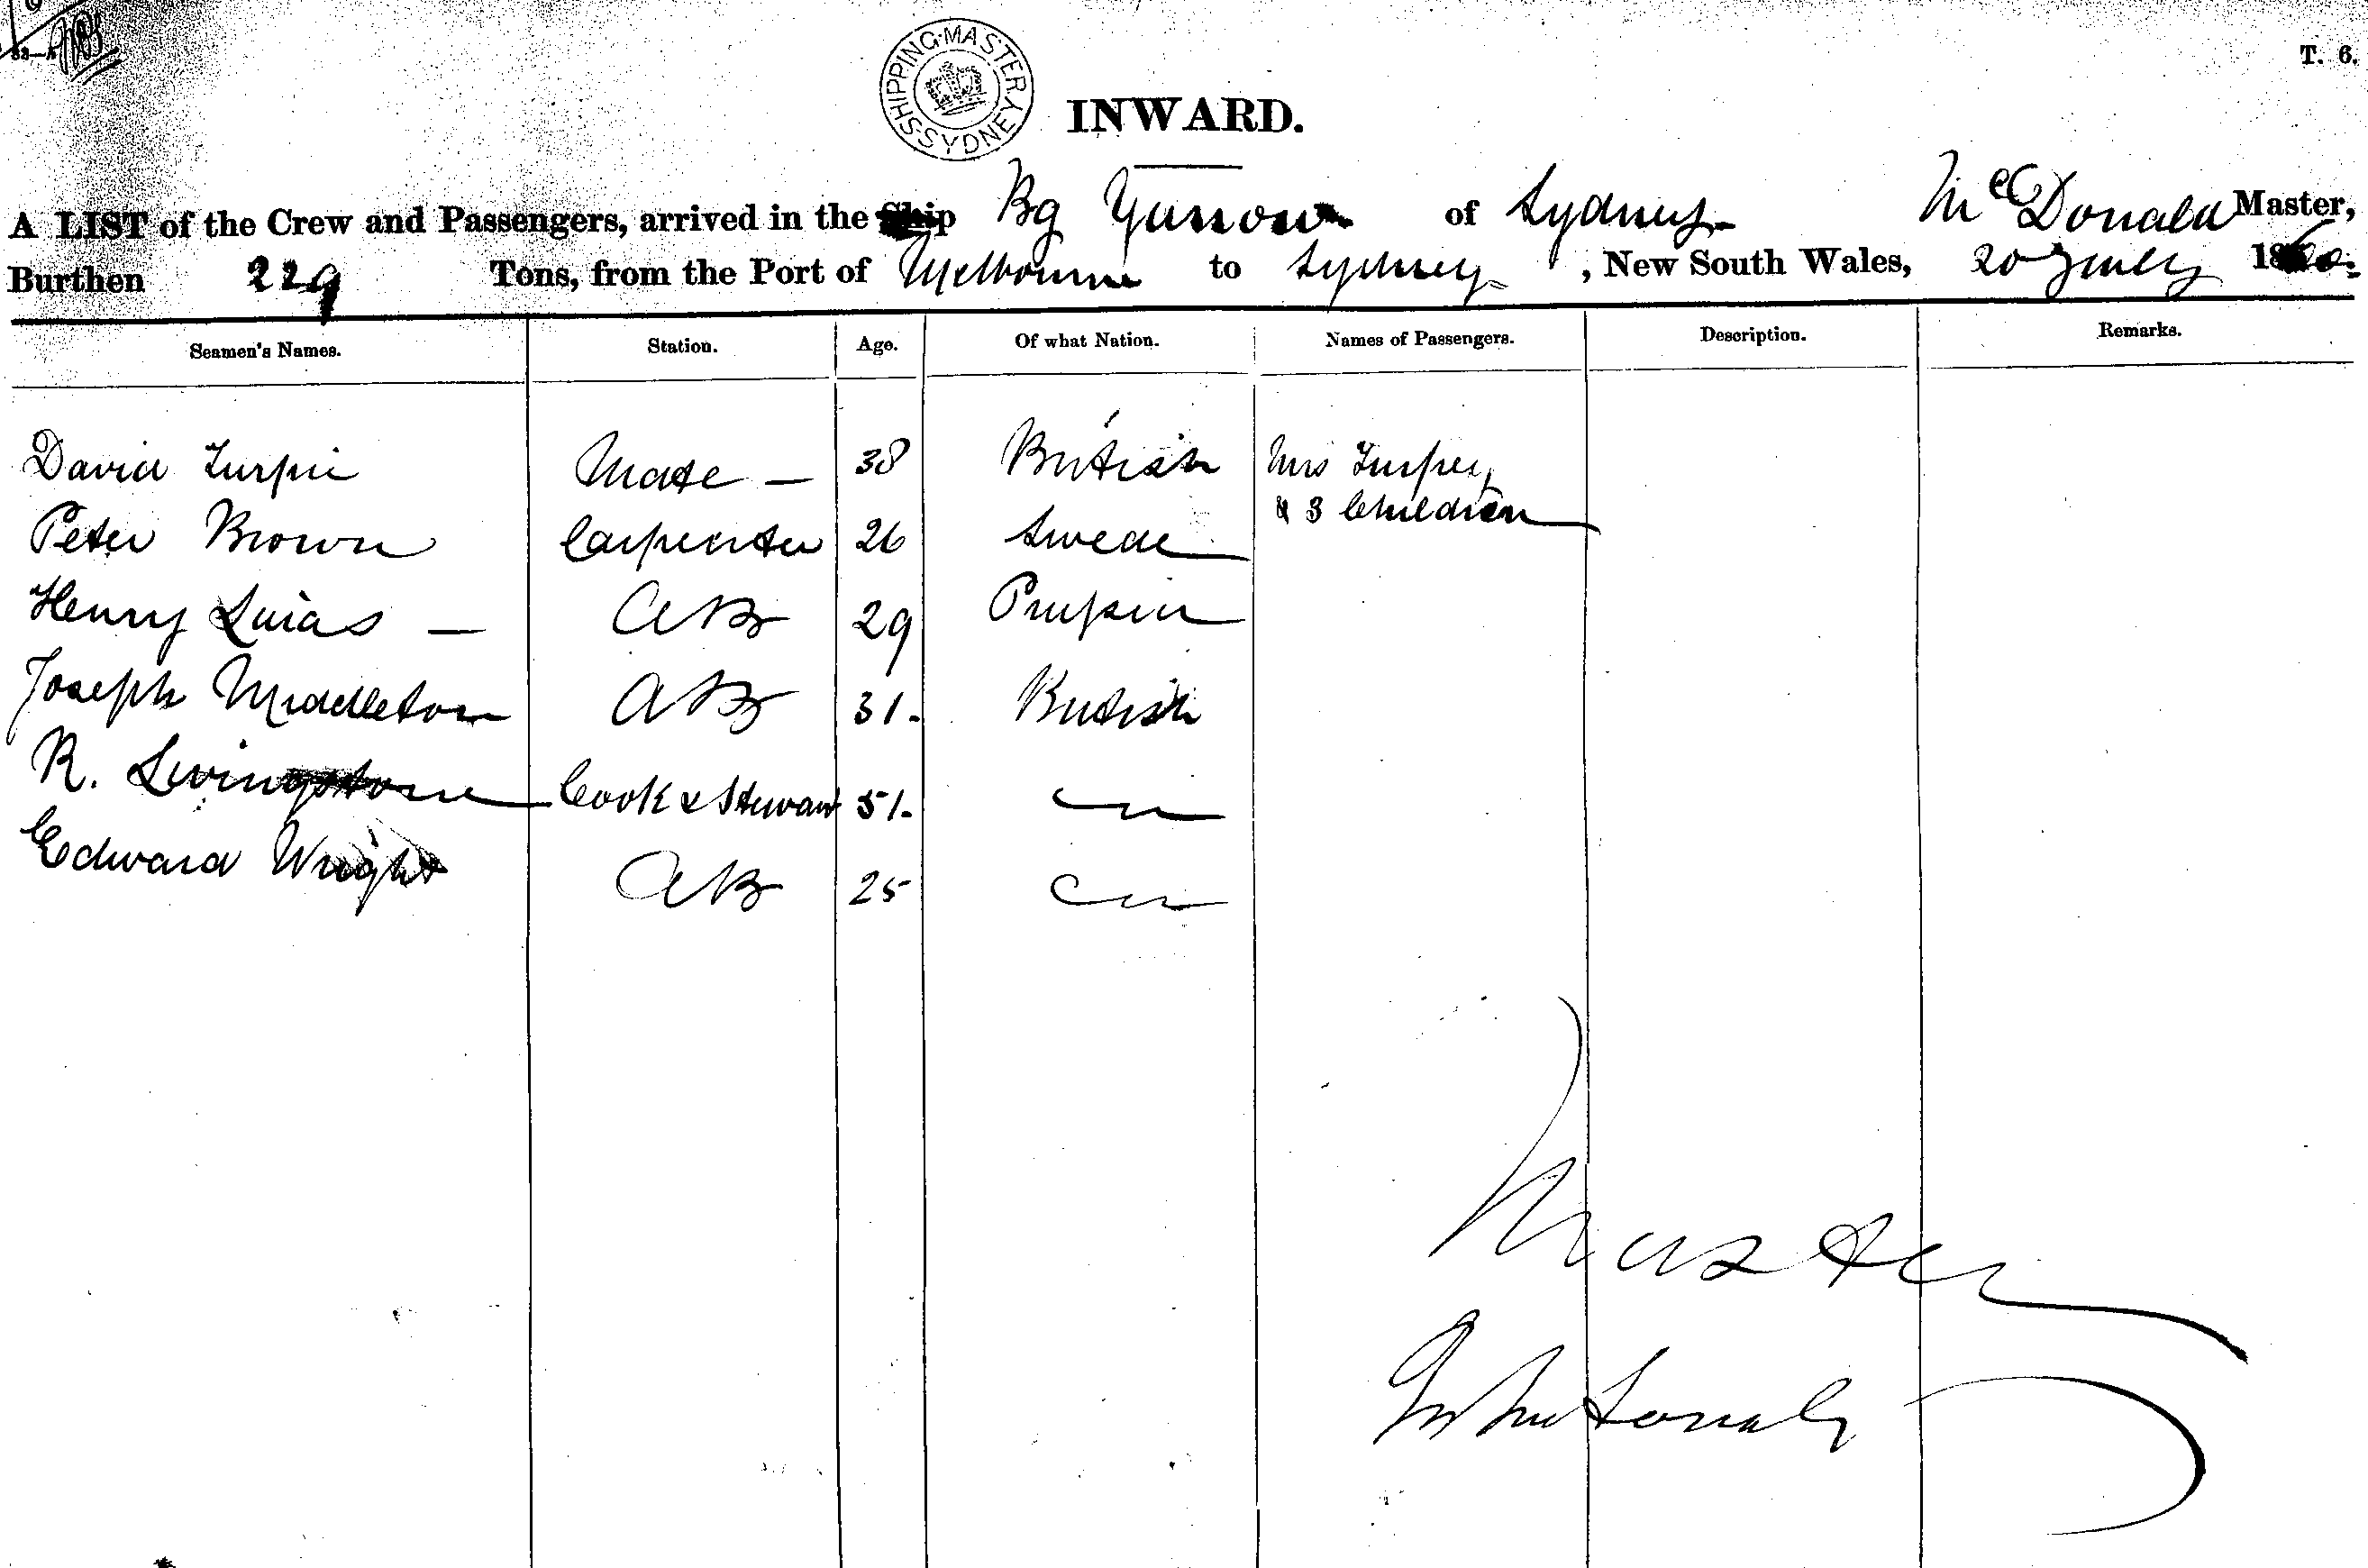 SHIPPING·MASTER
SYDNEY
T. 6.
INWARD.
A LIST of the Crew and Passengers, arrived in the Ship Bg Yarrow of Sydney McDonald Master,
Burthen 229 Tons, from the Port of Melbourne to Sydney, New South Wales, 20 186
Seamen's Names. Station. Age. Of what Nation. Names of Passengers. Description. Remarks.
David Turpie Mate — 38 British Mrs Turpey
& 3 Children
Peter Brown Carpenter 26 Swede
Henry — AB 29 Prussia
Joseph Middleton AB 31. British
R. Livingstone Cook & Steward 51.
Edward Wright AB 25
Master